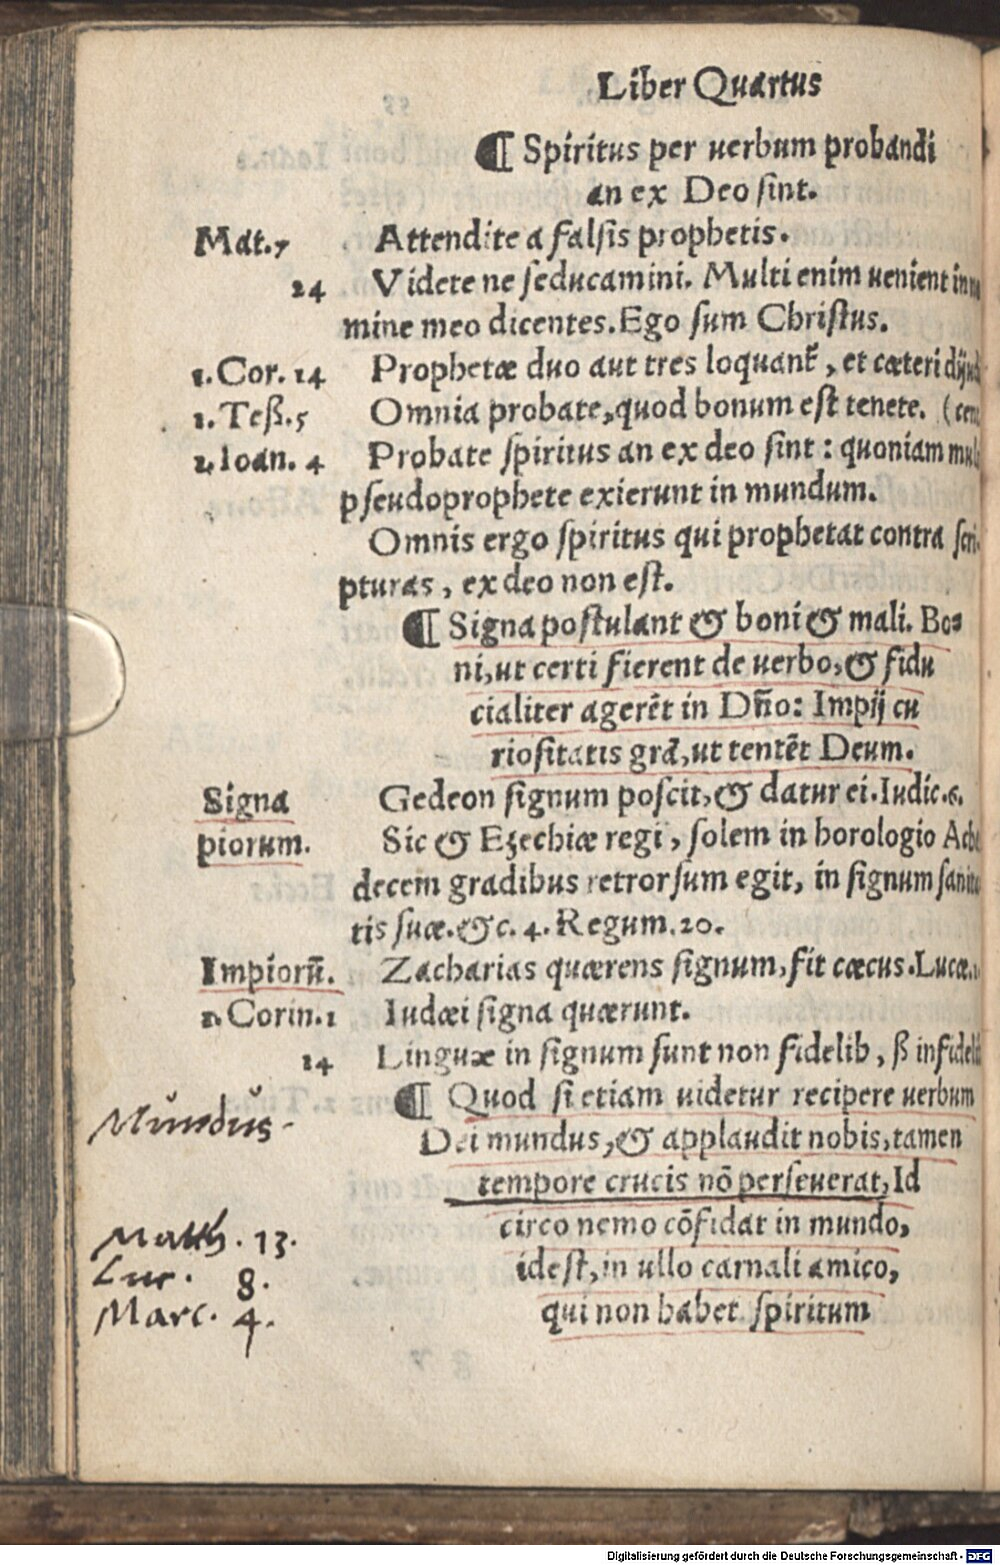 Liber Quartus
¶ Spiritus per uerbum probandi
an ex Deo sint.
Mat. 7 Attendite a falsis prophetis.
24 Videte ne seducamini. Multi enim uenient in
mine meo dicentes. Ego sum Christus.
1. Cor. 14 Prophetæ duo aut tres loquant᷑, et cæteri
1. Teß. 5 Omnia probate, quod bonum est tenete.
Ioan. 4 Probate spiritus an ex deo sint: quoniam
pseudoprophete exierunt in mundum.
Omnis ergo spiritus qui prophetat contra scri-
pturas, ex deo non est.
¶ Signa postulant & boni & mali. Bo-
ni, ut certi fierent de uerbo, & fidu
cialiter agerēt in Dño: Impij cu
riositatis grā, ut tentēt Deum.
Signa Gedeon signum poscit, & datur ei. Iudic. 6.
piorum. Sic & Ezechiæ regi, solem in horologio
decem gradibus retrorsum egit, in signum
tis suæ. &c. 4. Regum. 20.
Impiorū. Zacharias quærens signum, fit cæcus. Lucæ.
Corin. 1 Iudæi signa quærunt.
14 Linguæ in signum sunt non fidelib, ß
¶ Quod si etiam uidetur recipere uerbum
Mundus. Dei mundus, & applaudit nobis, tamen
tempore crucis nō perseuerat, Id
Matth. 13. circo nemo cōfidat in mundo,
Luc. 8. idest, in ullo carnali amico,
Marc. 4. qui non habet spiritum
Digitalisierung gefördert durch die Deutsche Forschungsgemeinschaft - DFG